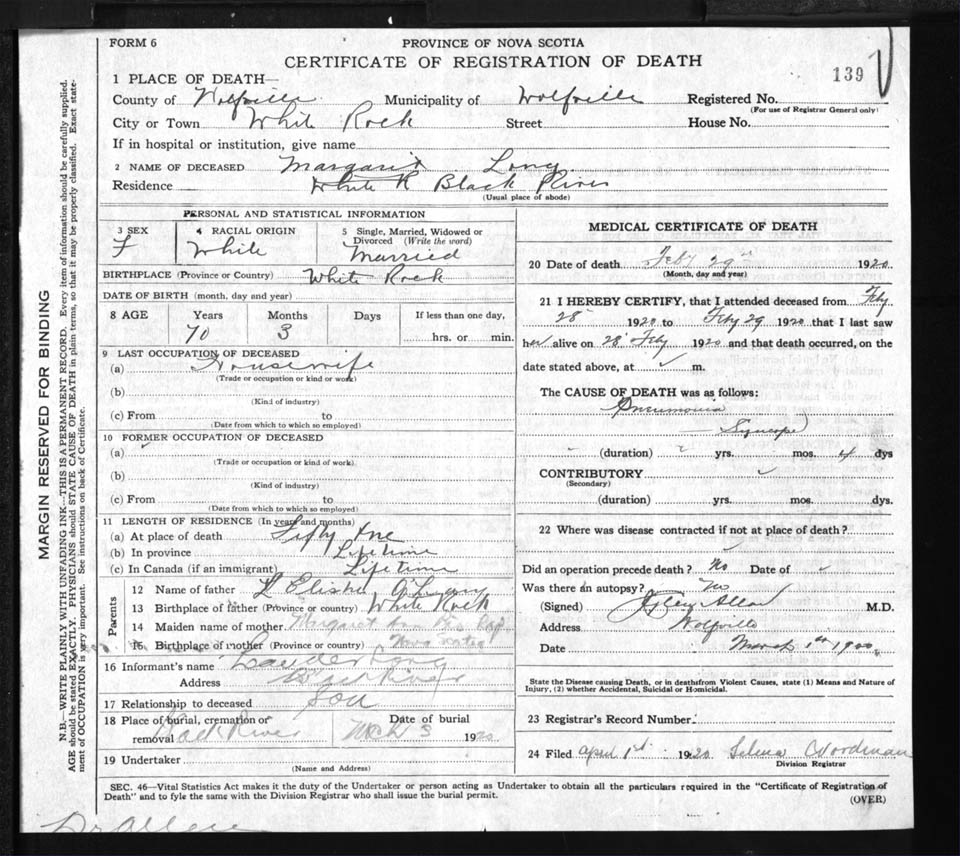 FORM 6
PROVINCE OF NOVA SCOTIA
CERTIFICATE OF REGISTRATION OF DEATH
139
1 PLACE OF DEATH—
County of Wolfville Municipality of Wolfville Registered No.
(For use of Registrar General only)
City or Town White Rock Street House No.
If in hospital or institution, give name
2 NAME OF DECEASED Margaret Long
Residence White R Black River
(Usual place of abode)
PERSONAL AND STATISTICAL INFORMATION
3 SEX 4 RACIAL ORIGIN 5 Single, Married, Widowed or Divorced (Write the word)
F White Married
BIRTHPLACE (Province or Country) White Rock
DATE OF BIRTH (month, day and year)
8 AGE Years Months Days If less than one day,
70 3 hrs. or min.
9 LAST OCCUPATION OF DECEASED
(a) Housewife
(Trade or occupation or kind or work)
(b)
(Kind of industry)
(c) From to
(Date from which to which so employed)
10 FORMER OCCUPATION OF DECEASED
(a)
(Trade or occupation or kind of work)
(b)
(Kind of industry)
(c) From to
(Date from which to which so employed)
11 LENGTH OF RESIDENCE (In years and months)
(a) At place of death Fifty
(b) In province Lifetime
(c) In Canada (if an immigrant) Lifetime
Parents
12 Name of father Elisha
13 Birthplace of father (Province or country) White Rock
14 Maiden name of mother Margaret Ann
15 Birthplace of mother (Province or country) Nova Scotia
16 Informant's name Long
Address Black River
17 Relationship to deceased Son
18 Place of burial, cremation or removal Black River Date of burial Mch 3 1920
19 Undertaker
(Name and Address)
MEDICAL CERTIFICATE OF DEATH
20 Date of death Feby 29 1920
(Month, day and year)
21 I HEREBY CERTIFY, that I attended deceased from Feby
28 1920 to Feby 29 1920 that I last saw
her alive on 28 Feby 1920 and that death occurred, on the
date stated above, at m.
The CAUSE OF DEATH was as follows:
Pneumonia
Syncope
(duration) yrs. mos. 4 dys
CONTRIBUTORY
(Secondary)
(duration) yrs. mos. dys.
22 Where was disease contracted if not at place of death?
Did an operation precede death? No Date of
Was there an autopsy? No
(Signed) Allen M.D.
Address Wolfville
Date March 1st 1920
State the Disease causing Death, or in deaths from Violent Causes, state (1) Means and Nature of Injury, (2) whether Accidental, Suicidal or Homicidal.
23 Registrar's Record Number
24 Filed April 1st 1920 Selena Woodman
Division Registrar
SEC. 46—Vital Statistics Act makes it the duty of the Undertaker or person acting as Undertaker to obtain all the particulars required in the "Certificate of Registration of
Death" and to fyle the same with the Division Registrar who shall issue the burial permit.
(OVER)
Dr Allen
MARGIN RESERVED FOR BINDING
N.B.—WRITE PLAINLY WITH UNFADING INK—THIS IS A PERMANENT RECORD. Every item of information should be carefully supplied.
AGE should be stated EXACTLY. PHYSICIANS should STATE CAUSE OF DEATH in plain terms, so that it may be properly classified. Exact state-
ment of OCCUPATION is very important. See instructions on back of Certificate.